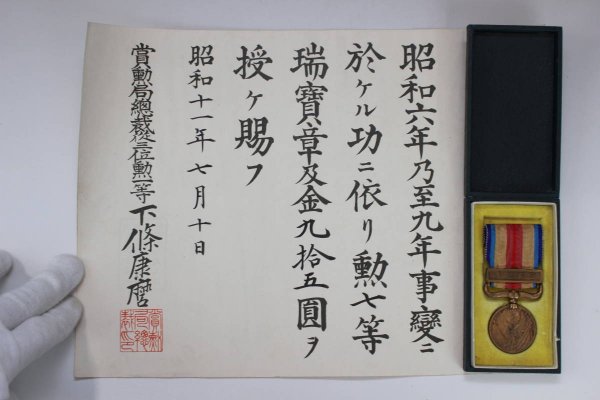 昭和六年乃至九年事變ニ
於ケル功ニ依リ勲七等
瑞寶章及金九拾五圓ヲ
授ケ賜フ
昭和十一年七月十日
賞勳局總裁從三位勲一等下條康麿